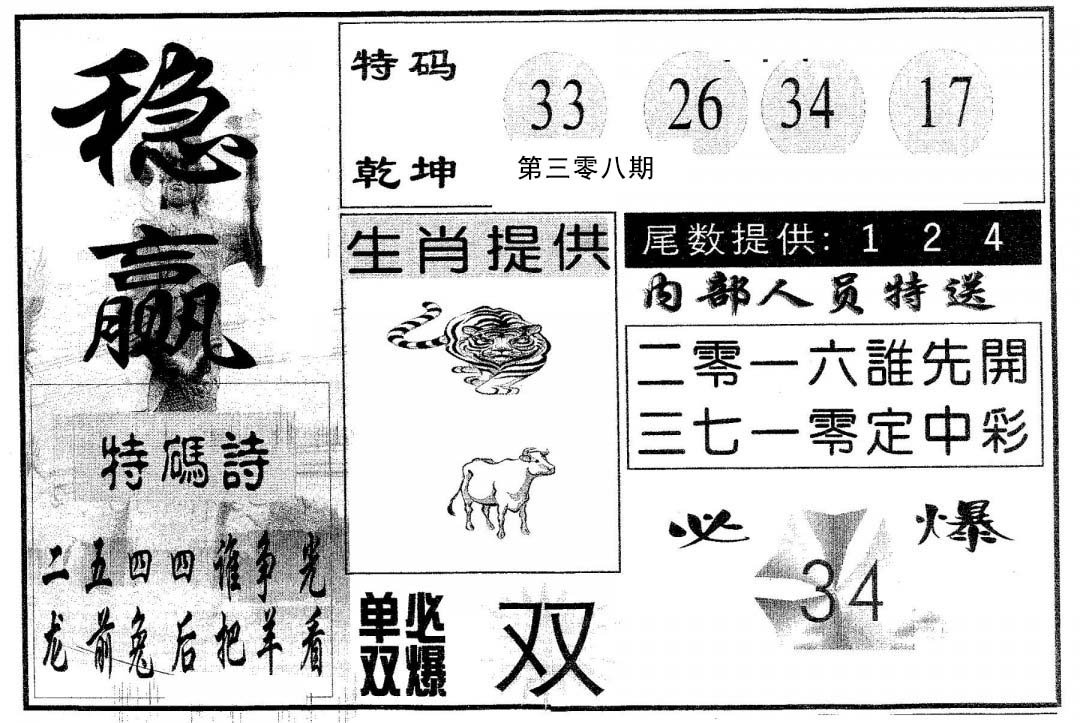 稳赢
特码诗
二五四四谁争光
龙前兔后把羊看
特码
33 26 34 17
乾坤
第三零八期
生肖提供
尾数提供: 1 2 4
内部人员特送
二零一六誰先開
三七一零定中彩
必爆
34
单双必爆
双